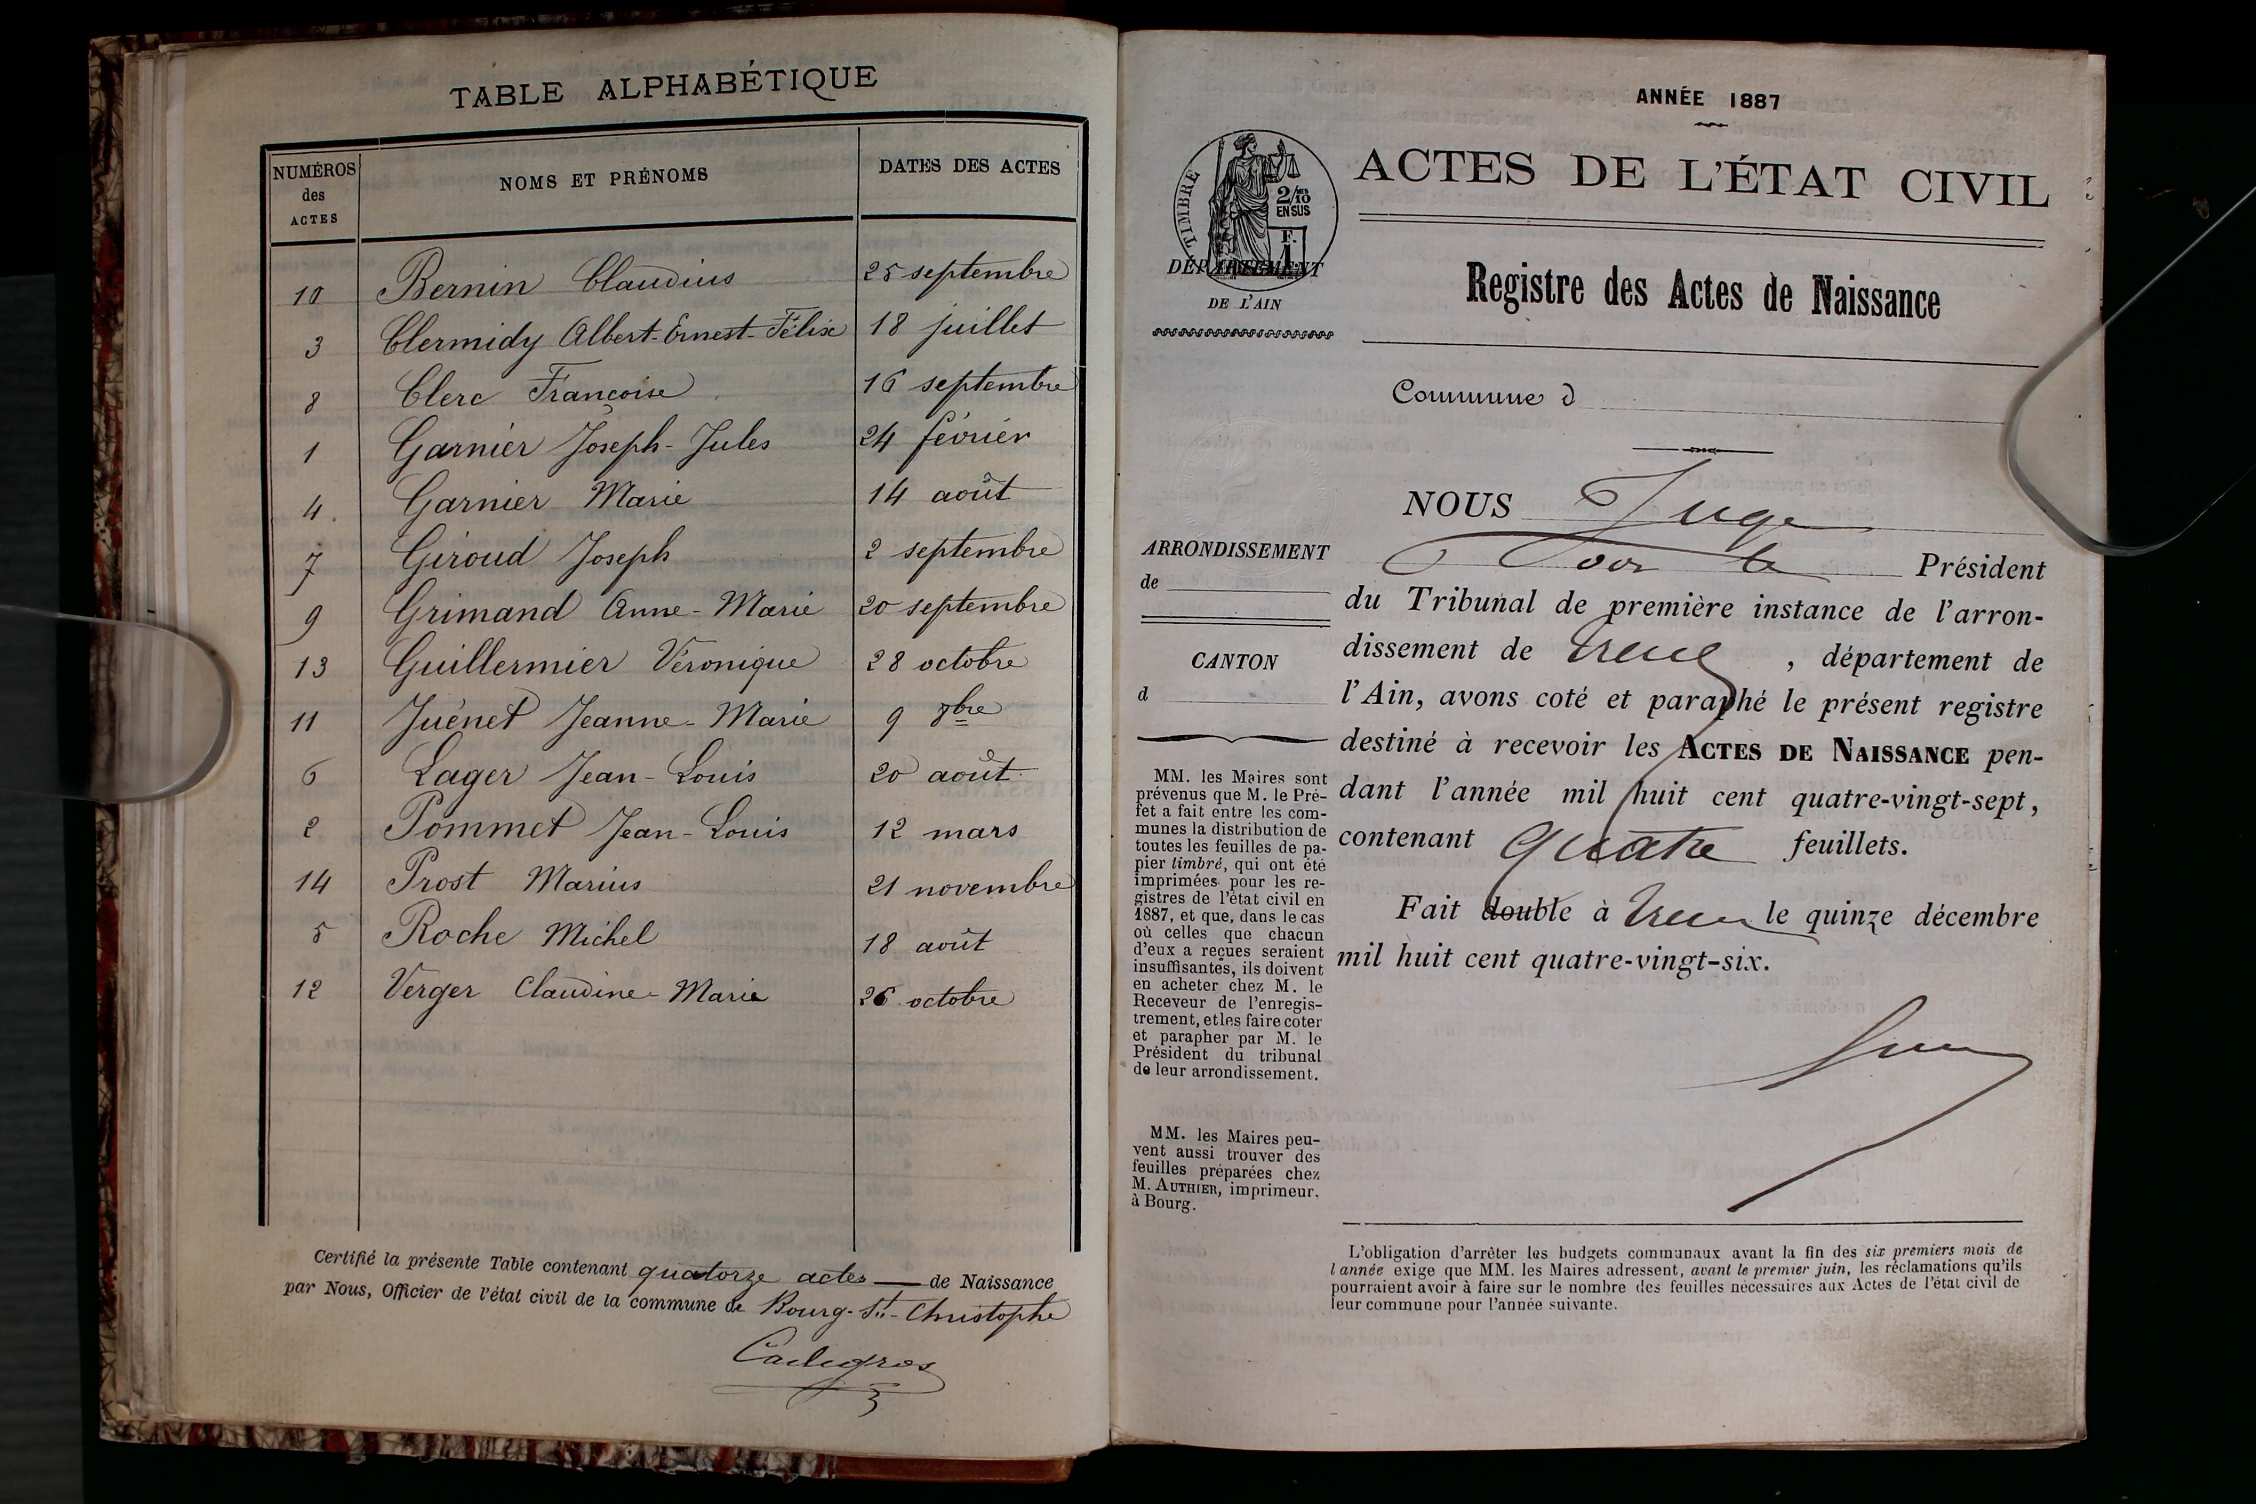 TABLE ALPHABÉTIQUE
NUMÉROS des ACTES NOMS ET PRÉNOMS DATES DES ACTES
10 Bernin Claudius 25 septembre
3 Clermidy Albert-Ernest-Félix 18 juillet
8 Clerc Françoise 16 septembre
1 Garnier Joseph-Jules 24 février
4. Garnier Marie 14 août
7 Giroud Joseph 2 septembre
9 Grimand Anne-Marie 20 septembre
13 Guillermier Véronique 28 octobre
11 Juénet Jeanne-Marie 9 8bre
6 Lager Jean-Louis 20 août
2 Pommet Jean-Louis 12 mars
14 Prost Marius 21 novembre
5 Roche Michel 18 août
12 Verger Claudine-Marie 26 octobre
Certifié la présente Table contenant quatorze actes — de Naissance
par Nous, Officier de l'état civil de la commune de Bourg-St-Christophe
ANNÉE 1887
TIMBRE
2/10 EN SUS
F. 1
DÉPARTEMENT
DE L'AIN
ACTES DE L'ÉTAT CIVIL
Registre des Actes de Naissance
Commune d
ARRONDISSEMENT
de
CANTON
d
MM. les Maires sont
prévenus que M. le Pré-
fet a fait entre les com-
munes la distribution de
toutes les feuilles de pa-
pier timbré, qui ont été
imprimées pour les re-
gistres de l'état civil en
1887, et que, dans le cas
où celles que chacun
d'eux a reçues seraient
insuffisantes, ils doivent
en acheter chez M. le
Receveur de l'enregis-
trement, et les faire coter
et parapher par M. le
Président du tribunal
de leur arrondissement.
MM. les Maires peu-
vent aussi trouver des
feuilles préparées chez
M. AUTHIER, imprimeur,
à Bourg.
NOUS Juge
Pour le Président
du Tribunal de première instance de l'arron-
dissement de , département de
l'Ain, avons coté et paraphé le présent registre
destiné à recevoir les ACTES DE NAISSANCE pen-
dant l'année mil huit cent quatre-vingt-sept,
contenant quatre feuillets.
Fait double à le quinze décembre
mil huit cent quatre-vingt-six.
L'obligation d'arrêter les budgets communaux avant la fin des six premiers mois de
l'année exige que MM. les Maires adressent, avant le premier juin, les réclamations qu'ils
pourraient avoir à faire sur le nombre des feuilles nécessaires aux Actes de l'état civil de
leur commune pour l'année suivante.